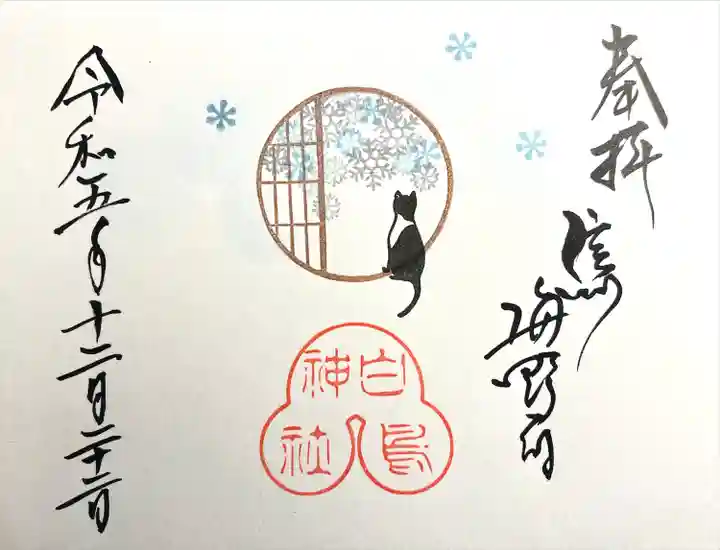 奉拝
信州
海野宿
白鳥
神社
令和五年十二月二十二日